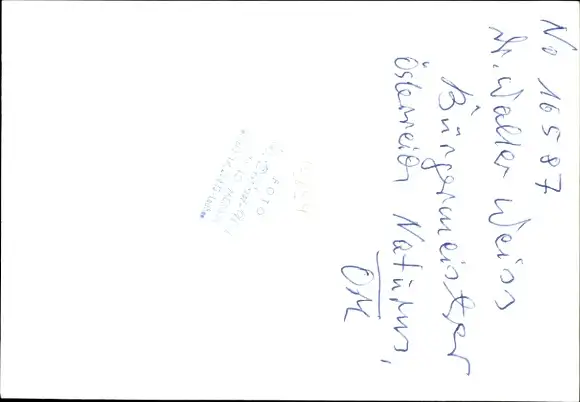 No 16587
Dr. Walter Weiss
Bürgermeister
Österreich Naturns,
OM
FOTO